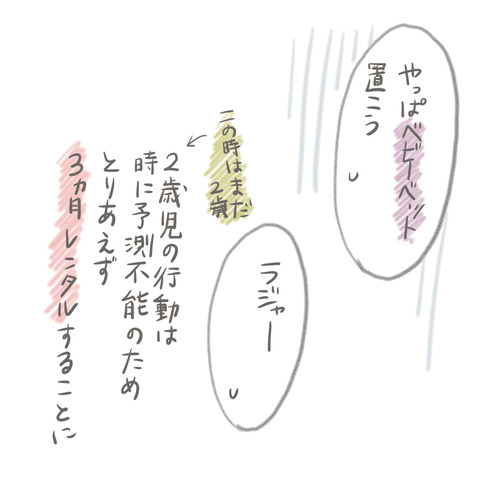 やっぱベビーベット
置こう
ラジャー
この時はまだ
2歳
2歳児の行動は
時に予測不能のため
とりあえず
3ヵ月レンタルすることに